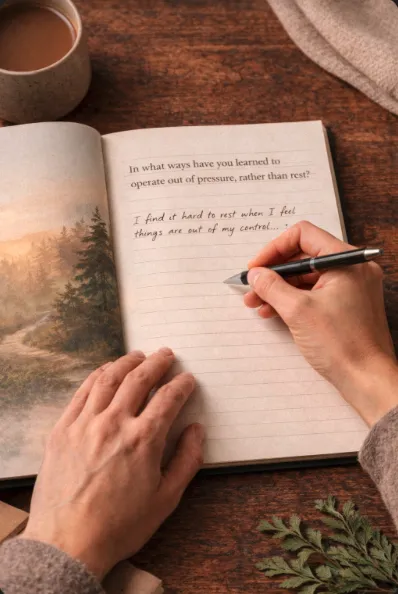 In what ways have you learned to
operate out of pressure, rather than rest?
I find it hard to rest when I feel
things are out of my control....